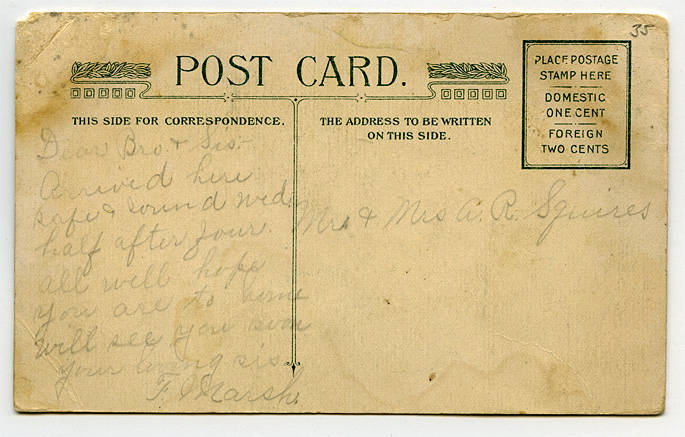 35
POST CARD.
THIS SIDE FOR CORRESPONDENCE.
THE ADDRESS TO BE WRITTEN
ON THIS SIDE.
PLACE POSTAGE
STAMP HERE
DOMESTIC
ONE CENT
FOREIGN
TWO CENTS
Dear Bro & Sis-
Arrived here
safe & sound Wed
half after four.
all well hope
you are to home
will see you soon
your loving sis
F. Marsh.
Mr. & Mrs A. R. Squires